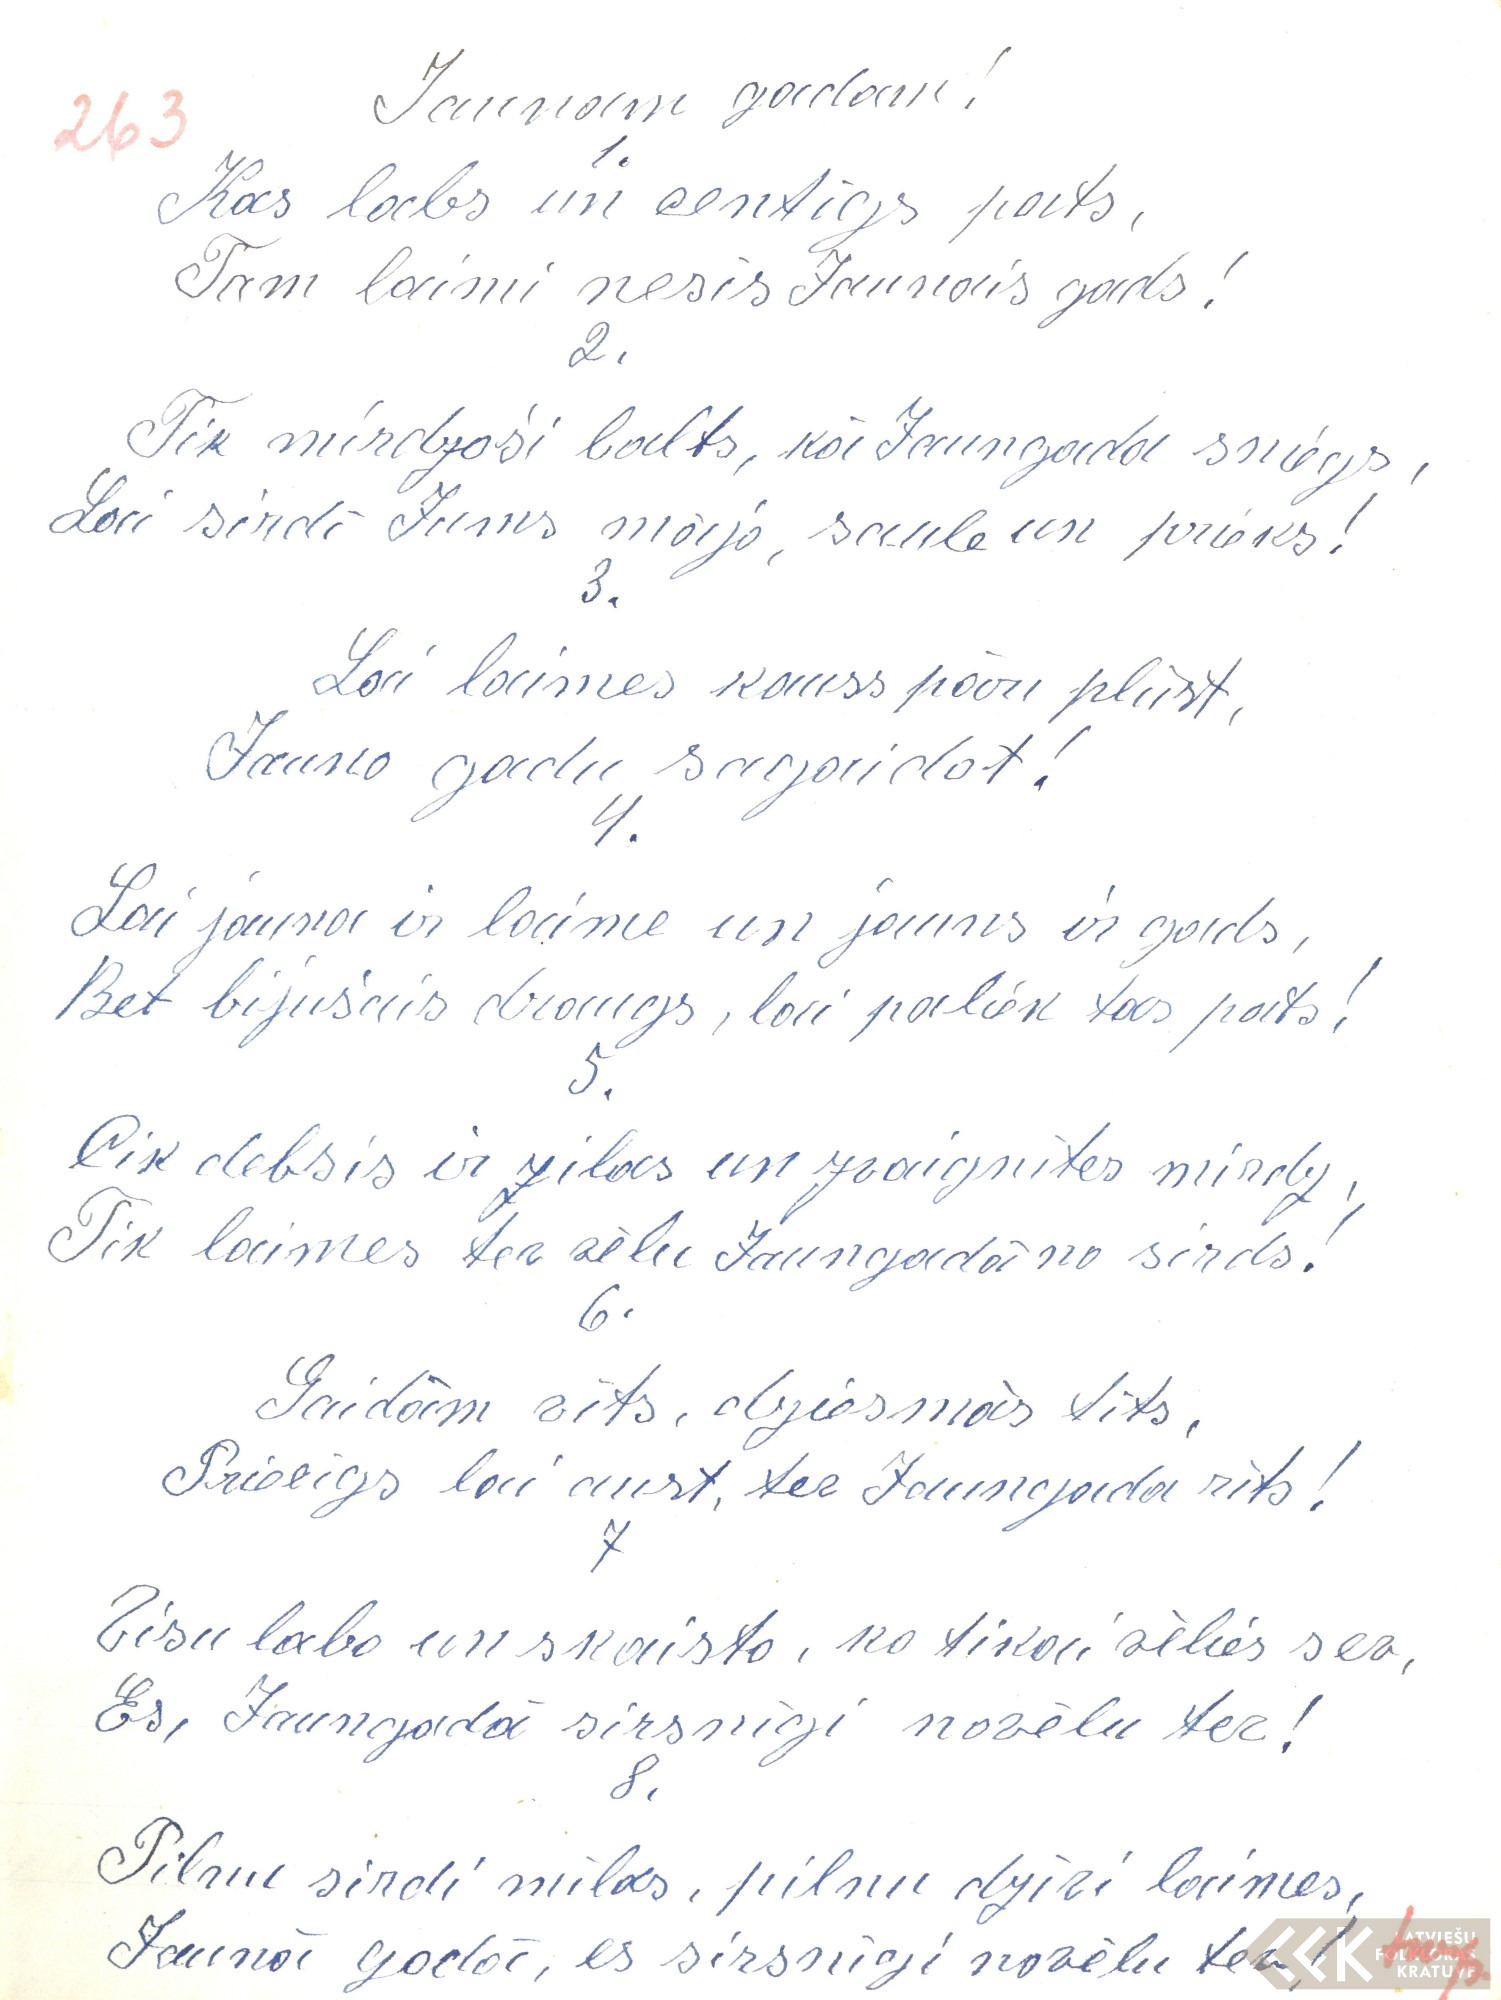 263
Jaunam gadam!
1.
Kas labs un centīgs pats,
Tam laimi nesīs Jaunais gads!
2.
Tik mirdzoši balts, kā Jaungada sniegs,
Lai sirdī Jums mājo, saule un prieks!
3.
Lai laimes kauss pāru plūst,
Jauno gadu sagaidot!
4.
Lai jauna ir laime un jauns ir gads,
Bet bijušais draugs, lai paliek tas pats!
5.
Cik debesis ir zilas un zvaignītes mirdz,
Tik laimes tev vēlu Jaungadā no sirds!
6.
Gaidām vīts, dziesmās tīts,
Priecīgs lai aust, tev Jaungada rīts!
7
Visu labo un skaisto, ko tikai vēlies sev,
Es, Jaungadā sirsnīgi novēlu tev!
8.
Pilnu sirdi mīlas, pilnu dzīvi laimes,
Jaunā gadā, es sirsnīgi novēlu tev!
LATVIEŠU
FOLKLORAS
KRATUVE